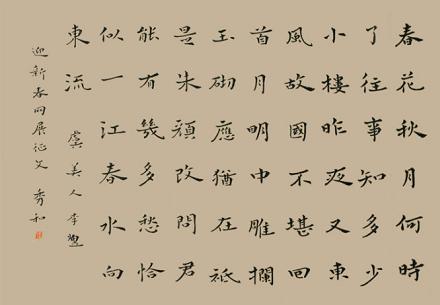 春花秋月何時
了往事知多少
小樓昨夜又東
風故國不堪回
首月明中雕欄
玉砌應猶在祇
是朱顏改問君
能有幾多愁恰
似一江春水向
東流 虞美人李煜
迎新春网展征文 秀和